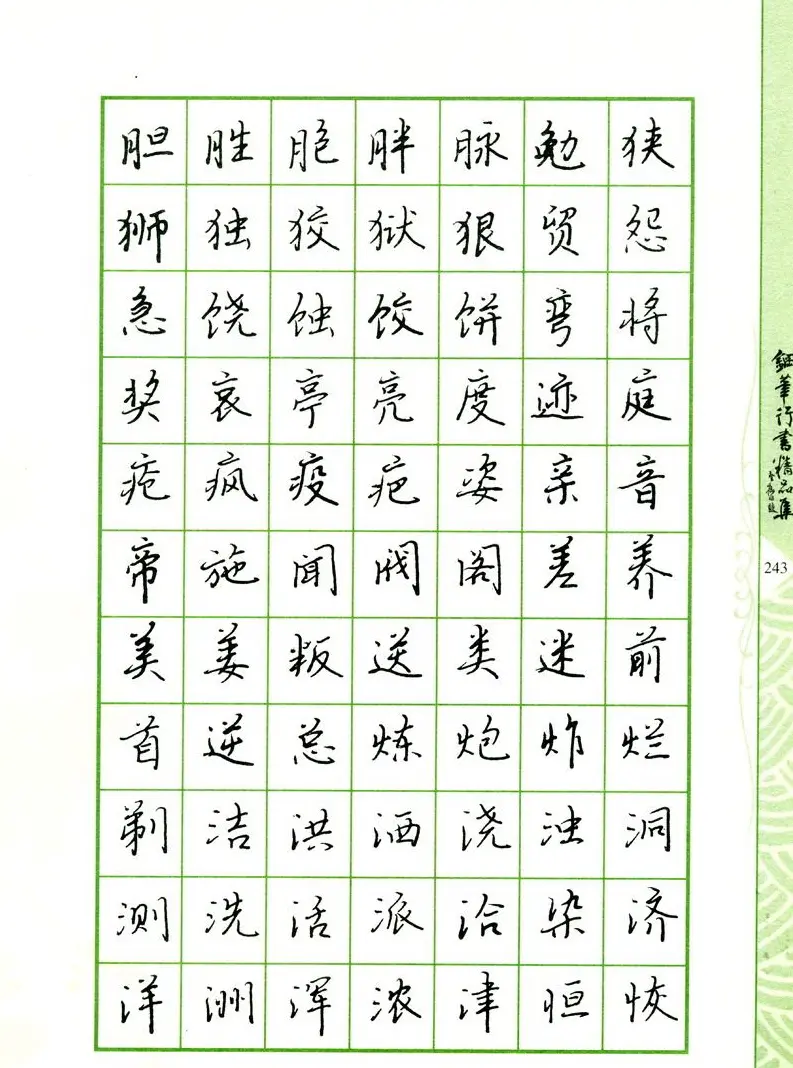 胆胜胞胖脉勉狭
狮独狡狱狠贸怨
急饶蚀饺饼弯将
奖哀亭亮度迹庭
疮疯疫疤姿亲音
帝施闻阀阁差养
美姜叛送类迷前
首逆总炼炮炸烂
剃洁洪洒浇浊洞
测洗活派洽染济
洋洲浑浓津恒恢
钢笔行书精品集
243